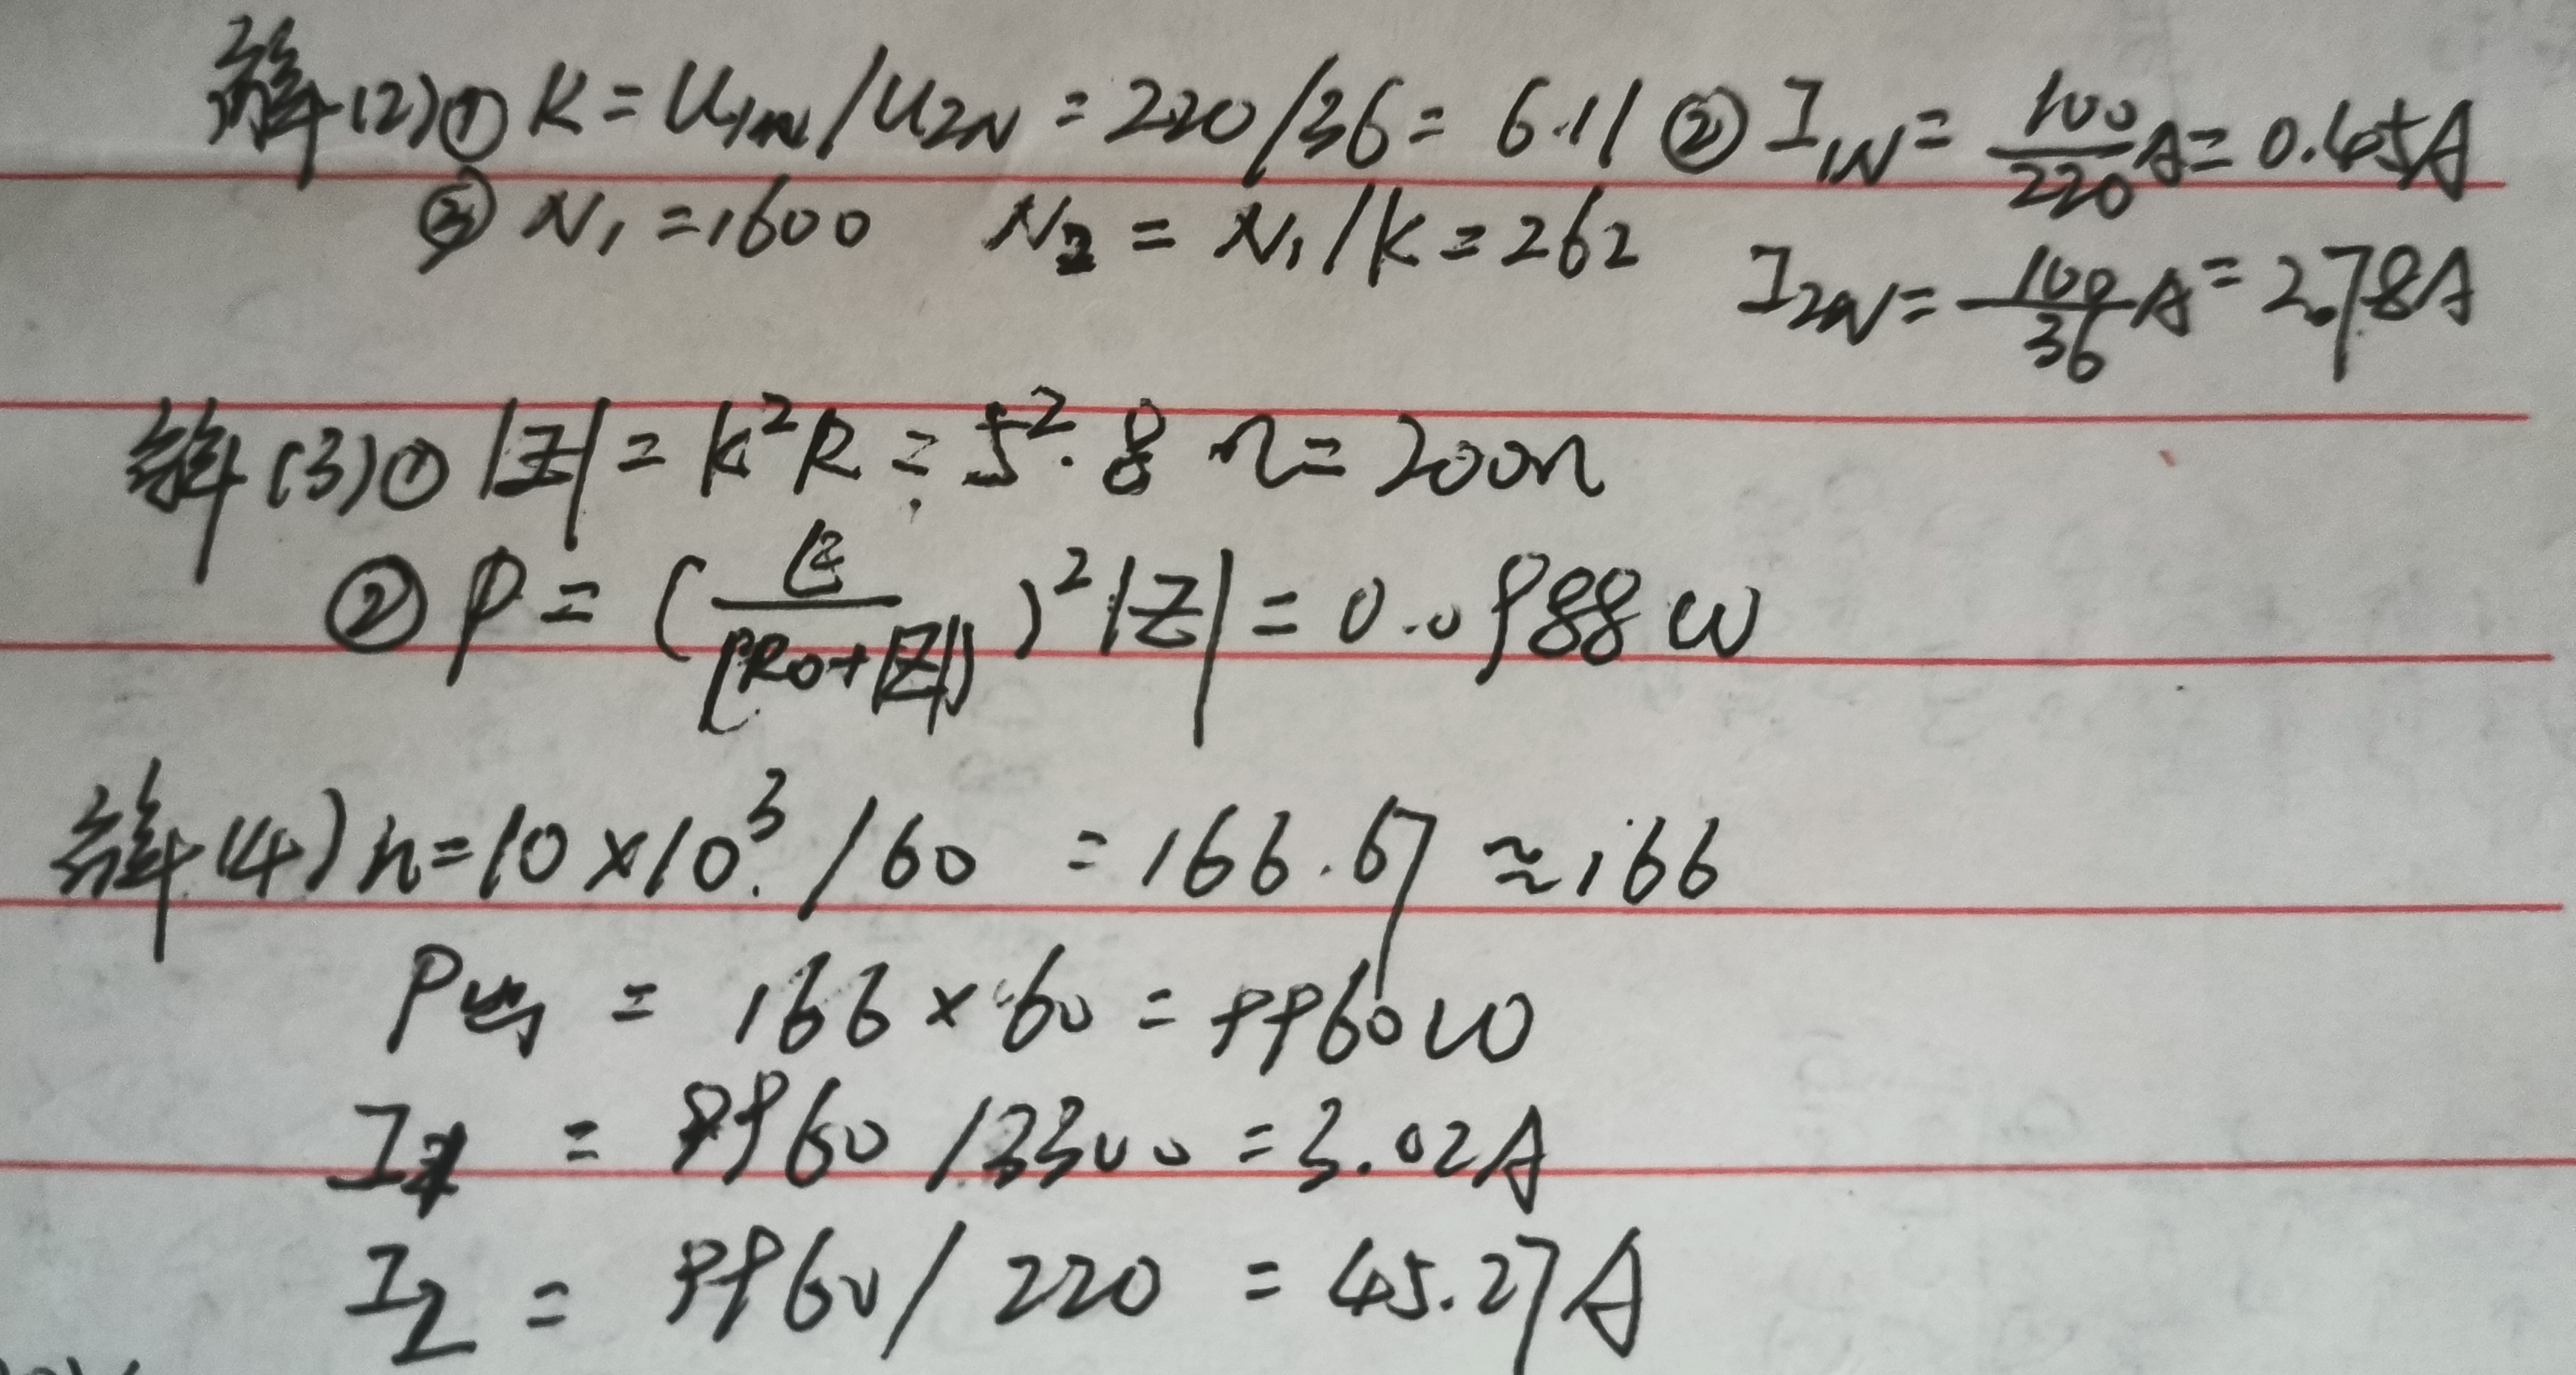 解(2)① K=U1N/U2N=220/36=6.11 ② I1N=100/220A=0.45A
③ N1=1600 N2=N1/K=262
I2N=100/36A=2.78A
解(3)① |Z|=K²R=5²·8Ω=200Ω
② P=(E/(R0+|Z|))²|Z|=0.0988W
解(4) n=10×10³/60=166.67≈166
P=166×60=9960W
I1=9960/3300=3.02A
I2=9960/220=45.27A